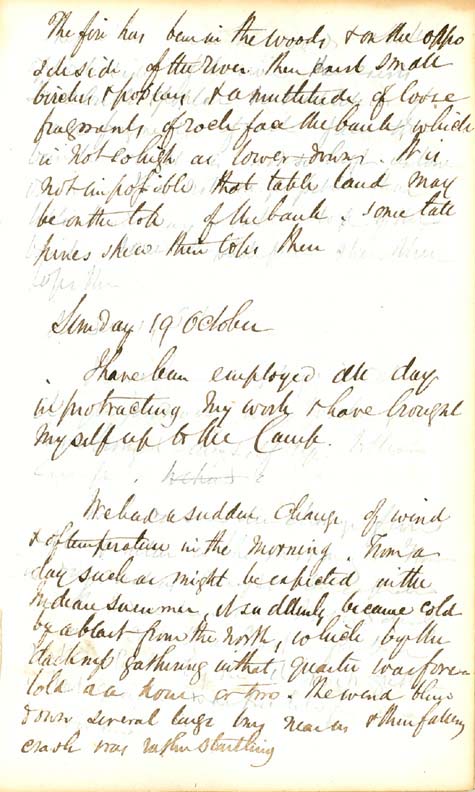 The fire has been in the woods & on the oppo
site side of the river there exist small
birches & poplars & a multitude of loose
fragments of rock face the bank, which
is not so high as lower down. It is
not impossible that table land may
be on the top of the bank. Some tall
pines shew their tops there
Sunday 19 October
I have been employed all day
in protracting my work & have brought
myself up to the Camp.
We had a sudden change of wind
& of temperature in the morning. From a
day such as might be expected in the
Indian summer, it suddenly became cold
by a blast from the north, which by the
black gathering in that quarter was fore
told an hour or two. The wind blew
down several large trees near us & their falling
crash was rather startling